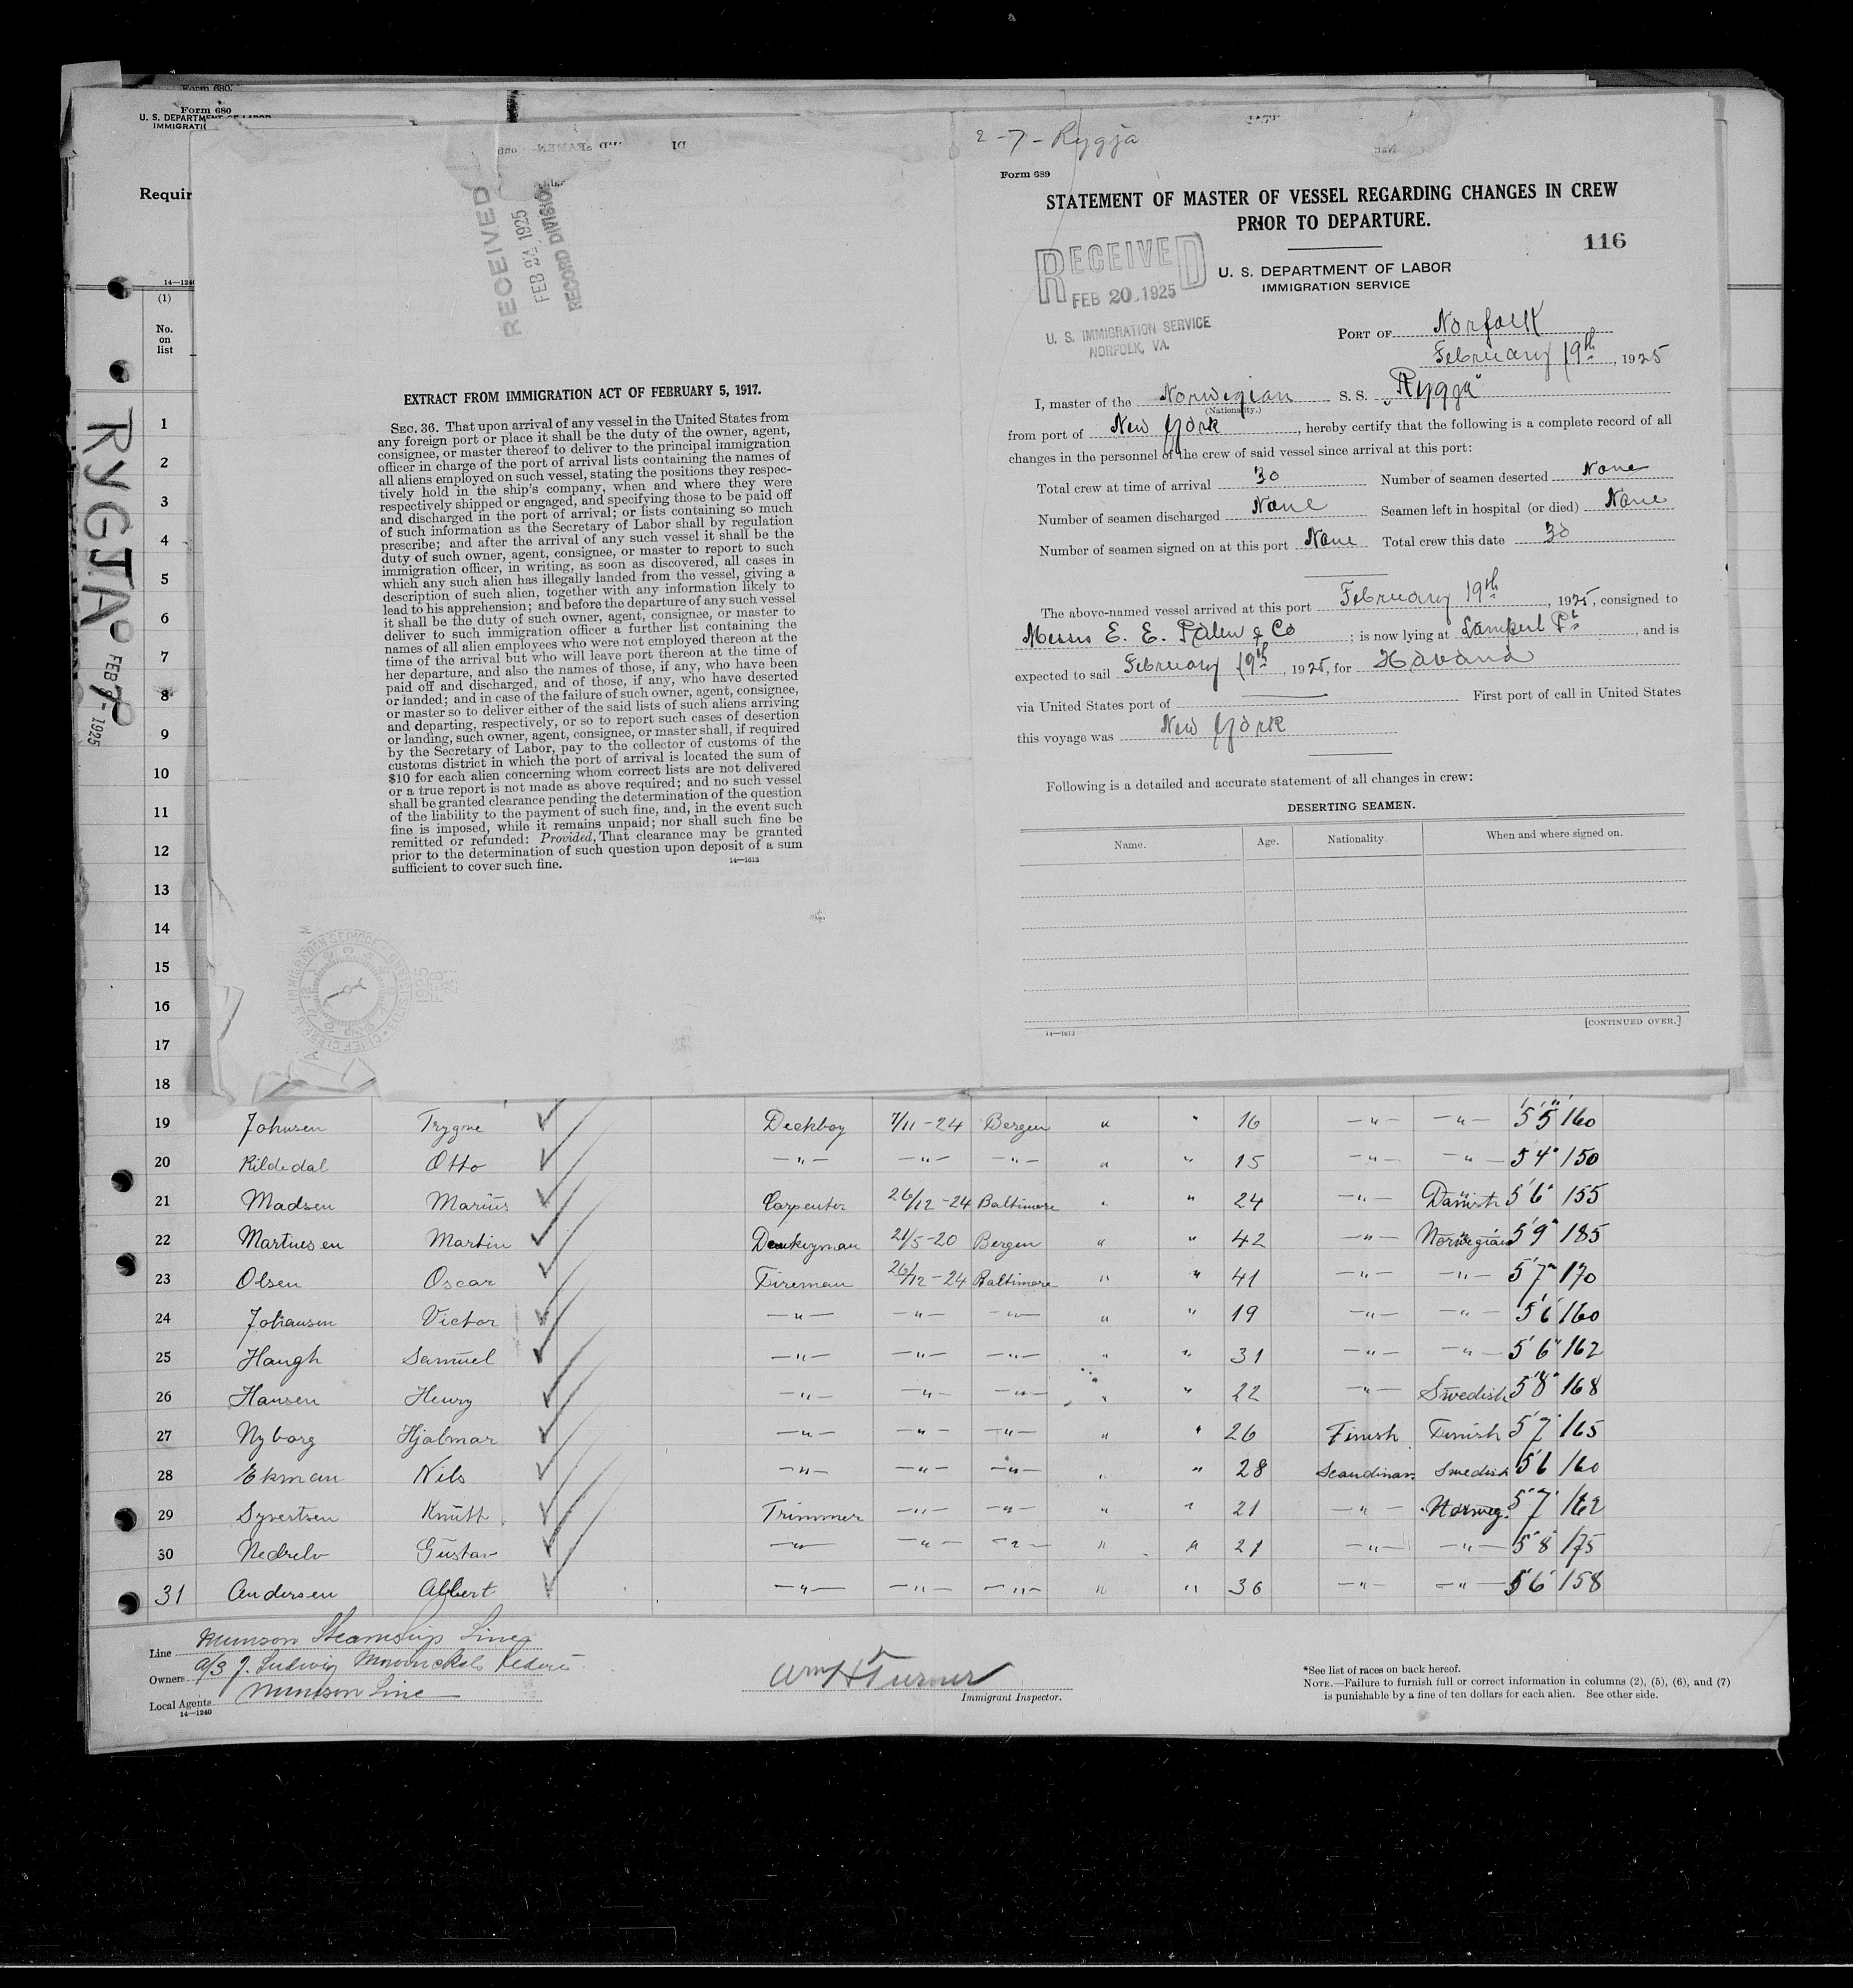 Form 680.
Form 680
U. S. DEPARTMENT OF LABOR
IMMIGRATI
Requir
14—1240
(1)
No.
on
list
1
2
3
4
5
6
7
8
9
10
11
12
13
14
15
16
17
18
RYGJA
FEB 7- 1925
RECEIVED
FEB 24 1925
RECORD DIVISION
EXTRACT FROM IMMIGRATION ACT OF FEBRUARY 5, 1917.
SEC. 36. That upon arrival of any vessel in the United States from
any foreign port or place it shall be the duty of the owner, agent,
consignee, or master thereof to deliver to the principal immigration
officer in charge of the port of arrival lists containing the names of
all aliens employed on such vessel, stating the positions they respec-
tively hold in the ship's company, when and where they were
respectively shipped or engaged, and specifying those to be paid off
and discharged in the port of arrival; or lists containing so much
of such information as the Secretary of Labor shall by regulation
prescribe; and after the arrival of any such vessel it shall be the
duty of such owner, agent, consignee, or master to report to such
immigration officer, in writing, as soon as discovered, all cases in
which any such alien has illegally landed from the vessel, giving a
description of such alien, together with any information likely to
lead to his apprehension; and before the departure of any such vessel
it shall be the duty of such owner, agent, consignee, or master to
deliver to such immigration officer a further list containing the
names of all alien employees who were not employed thereon at the
time of the arrival but who will leave port thereon at the time of
her departure, and also the names of those, if any, who have been
paid off and discharged, and of those, if any, who have deserted
or landed; and in case of the failure of such owner, agent, consignee,
or master so to deliver either of the said lists of such aliens arriving
and departing, respectively, or so to report such cases of desertion
or landing, such owner, agent, consignee, or master shall, if required
by the Secretary of Labor, pay to the collector of customs of the
customs district in which the port of arrival is located the sum of
$10 for each alien concerning whom correct lists are not delivered
or a true report is not made as above required; and no such vessel
shall be granted clearance pending the determination of the question
of the liability to the payment of such fine, and, in the event such
fine is imposed, while it remains unpaid; nor shall such fine be
remitted or refunded: Provided, That clearance may be granted
prior to the determination of such question upon deposit of a sum
sufficient to cover such fine.
14—1613
2-7- Rygja
Form 689
STATEMENT OF MASTER OF VESSEL REGARDING CHANGES IN CREW
PRIOR TO DEPARTURE.
116
RECEIVED
FEB 20 1925
U. S. IMMIGRATION SERVICE
NORFOLK, VA.
U. S. DEPARTMENT OF LABOR
IMMIGRATION SERVICE
PORT OF Norfolk
February 19th, 1925
I, master of the Norwegian S. S. „Rygja"
(Nationality.)
from port of New York, hereby certify that the following is a complete record of all
changes in the personnel of the crew of said vessel since arrival at this port:
Total crew at time of arrival 30 Number of seamen deserted None
Number of seamen discharged None Seamen left in hospital (or died) None
Number of seamen signed on at this port None Total crew this date 30
The above-named vessel arrived at this port February 19th, 1925, consigned to
Messrs E. E. Palen & Co; is now lying at Lampert Pt, and is
expected to sail February 19th, 1925, for Havana
via United States port of —— First port of call in United States
this voyage was New York
Following is a detailed and accurate statement of all changes in crew:
DESERTING SEAMEN.
Name. Age. Nationality. When and where signed on.
14—1613 [CONTINUED OVER.]
19 Johnsen Trygve Deckboy 7/11-24 Bergen " " 16 —"— —"— 5'5" 160
20 Kildedal Otto —"— —"— —"— " " 15 —"— —"— 5'4" 150
21 Madsen Marius Carpenter 26/12-24 Baltimore " " 24 —"— Danish 5'6" 155
22 Martinesen Martin Donkeyman 21/5-20 Bergen " " 42 —"— Norwegian 5'9" 185
23 Olsen Oscar Fireman 26/12-24 Baltimore " " 41 —"— —"— 5'7" 170
24 Johansen Victor —"— —"— —"— " " 19 —"— —"— 5'6 160
25 Haugh Samuel —"— —"— —"— " " 31 —"— —"— 5'6" 162
26 Hansen Henry —"— —"— —"— " " 22 —"— Swedish 5'8" 168
27 Nyborg Hjalmar —"— —"— —"— " " 26 Finish Finish 5'7" 165
28 Ekman Nils —"— —"— —"— " " 28 Scandinav. Swedish 5'6 160
29 Syvertsen Knutt Trimmer —"— —"— " " 21 —"— Norweg. 5'7" 162
30 Nedrelv Gustav —"— —"— —"— " " 21 —"— —"— 5'8" 175
31 Andersen Albert —"— —"— —"— " " 36 —"— —"— 5'6" 158
Line Munson Steamship Line
Owners A/S J. Ludwig Mowinckels Rederi
Local Agents Munson Line
14—1240
Wm H Turner
Immigrant Inspector.
*See list of races on back hereof.
NOTE.—Failure to furnish full or correct information in columns (2), (5), (6), and (7)
is punishable by a fine of ten dollars for each alien. See other side.